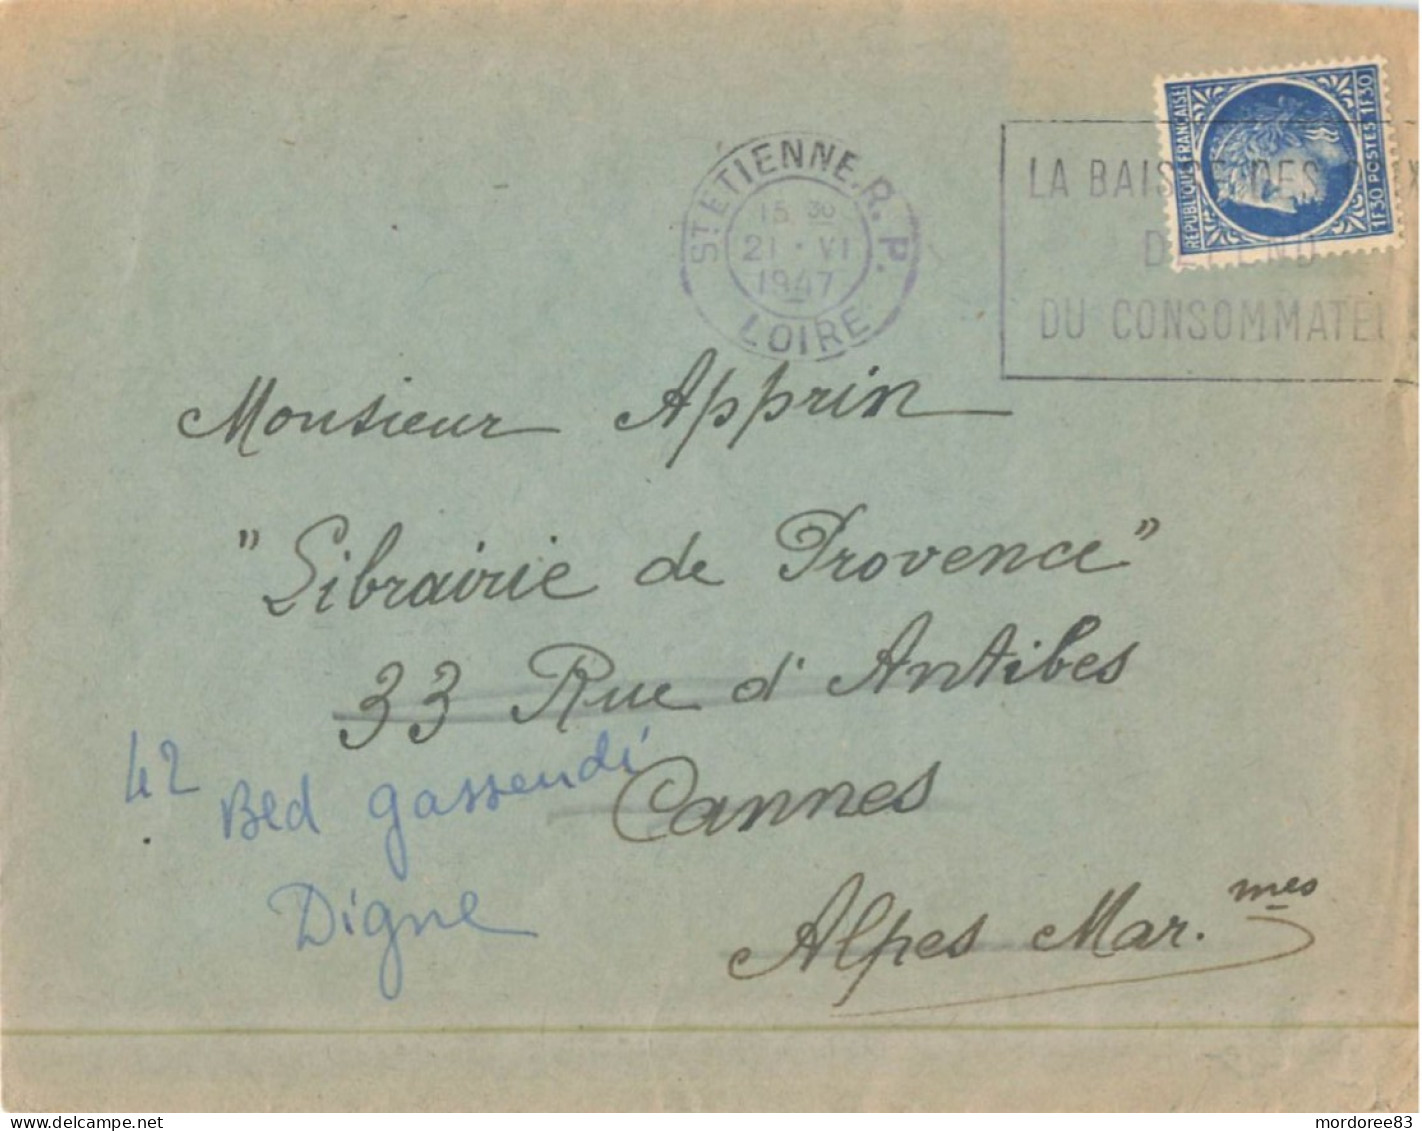 ST ETIENNE.R.P.
15 30
21 • VI
1947
LOIRE
REPUBLIQUE FRANÇAISE
1F30 POSTES 1F30
LA BAISSE DES PRIX
DEPEND
DU CONSOMMATEU
Monsieur Apprin
"Librairie de Provence"
33 Rue d'Antibes
Cannes
Alpes Mar.mes
42 Bld Gassendi
Digne
delcampe.net
mordoree83